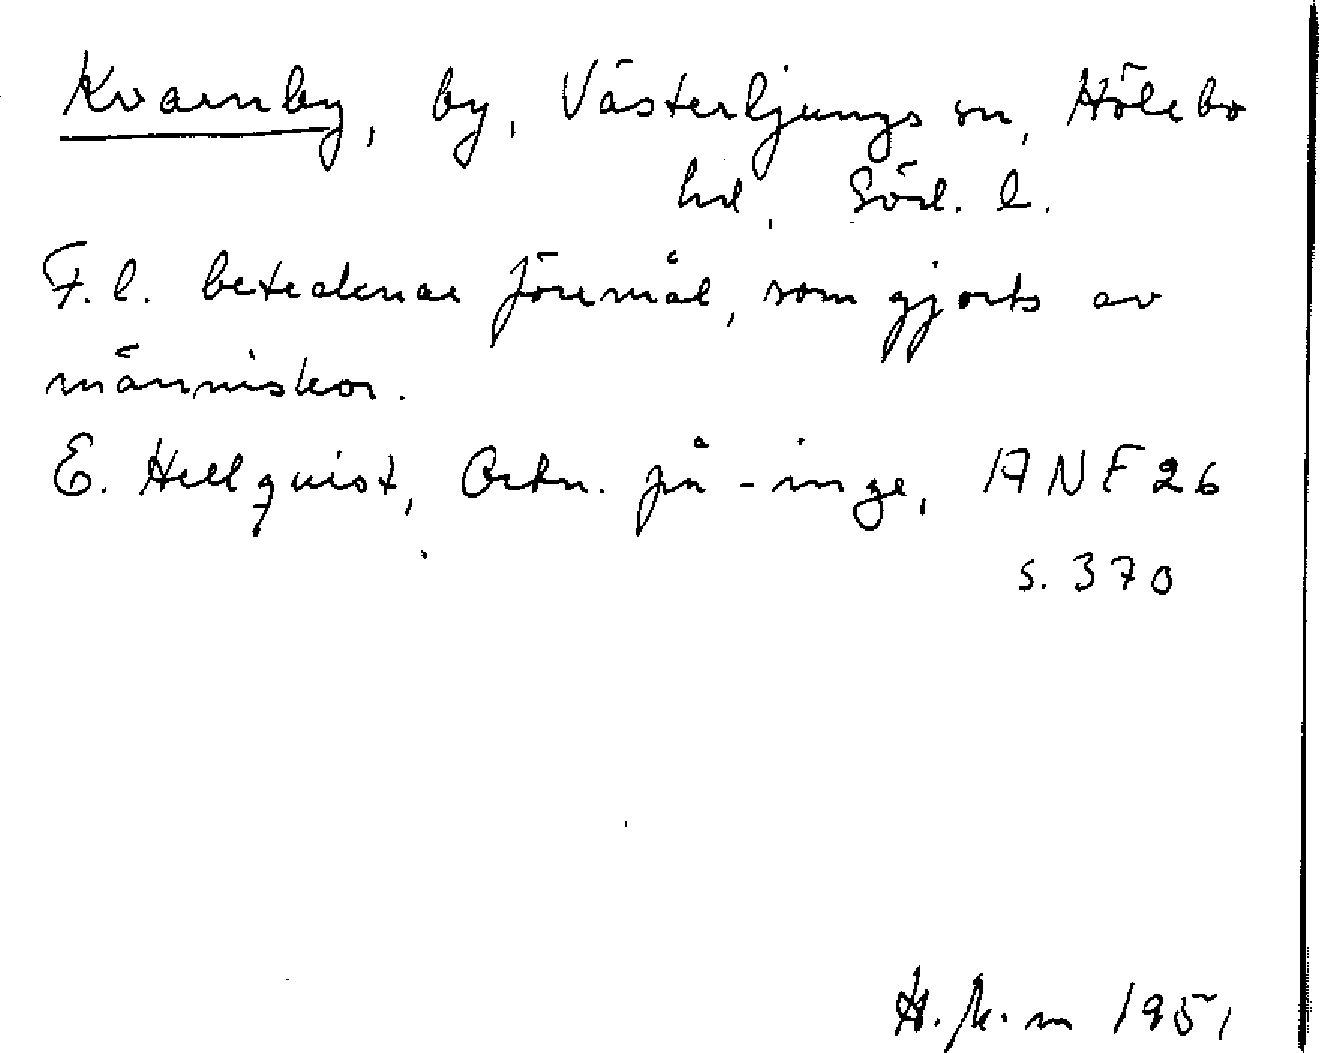 Kvarnby, by, Västerljungs sn, Hölebo
hd, Söd. l.
F.l. betecknar föremål, som gjorts av
människor.
E. Hellquist, Ortn. på -inge, ANF 26
s. 370
1951